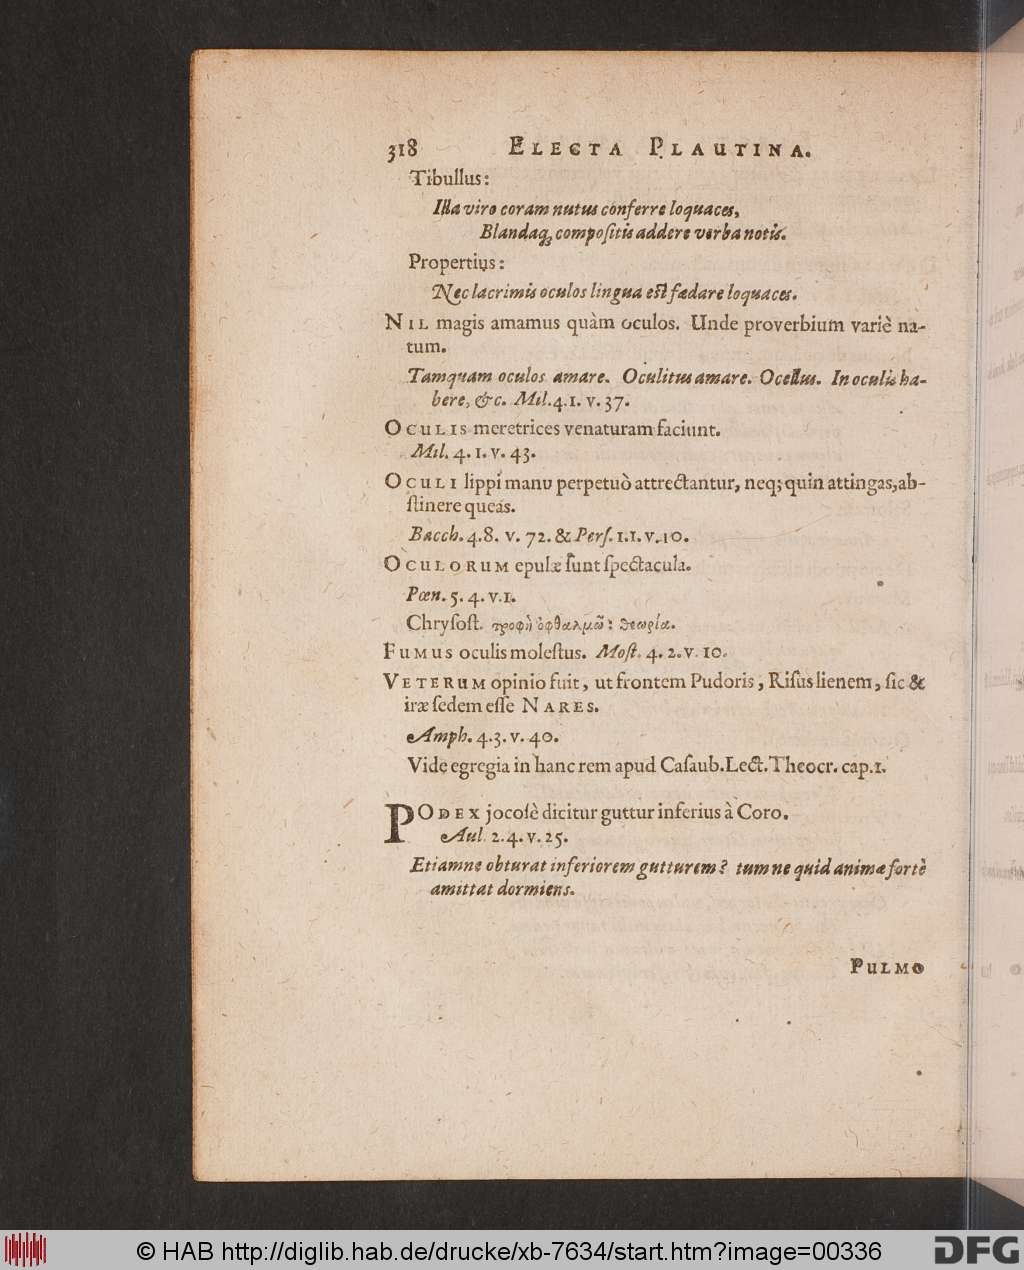 318 ELECTA PLAUTINA.
Tibullus:
Illa viro coram nutus conferre loquaces,
Blandaq; compoſitis addere verba notis.
Propertius:
Nec lacrimis oculos lingua est fœdare loquaces.
NIL magis amamus quàm oculos. Unde proverbium variè na-
tum.
Tamquam oculos amare. Oculitus amare. Ocellus. In oculis ha-
bere, &c. Mil. 4.1. v. 37.
OCULIS meretrices venaturam faciunt.
Mil. 4. 1. v. 43.
OCULI lippi manu perpetuò attrectantur, neq; quin attingas, ab-
ſtinere queás.
Bacch. 4.8. v. 72. & Perſ. 1.1. v. 10.
OCULORUM epulæ ſunt ſpectacula.
Pœn. 5. 4. v. 1.
Chryſoſt. τροφὴ ὀφθαλμῶν θεωρία.
FUMUS oculis moleſtus. Moſt. 4. 2. v. 10.
VETERUM opinio fuit, ut frontem Pudoris, Riſus lienem, ſic &
iræ ſedem eſſe NARES.
Amph. 4.3. v. 40.
Vide egregia in hanc rem apud Caſaub. Lect. Theocr. cap. 1.
PODEX jocoſè dicitur guttur inferius à Coro.
Aul. 2. 4. v. 25.
Etiamne obturat inferiorem gutturem? tum ne quid animæ fortè
amittat dormiens.
PULMO
© HAB http://diglib.hab.de/drucke/xb-7634/start.htm?image=00336
DFG